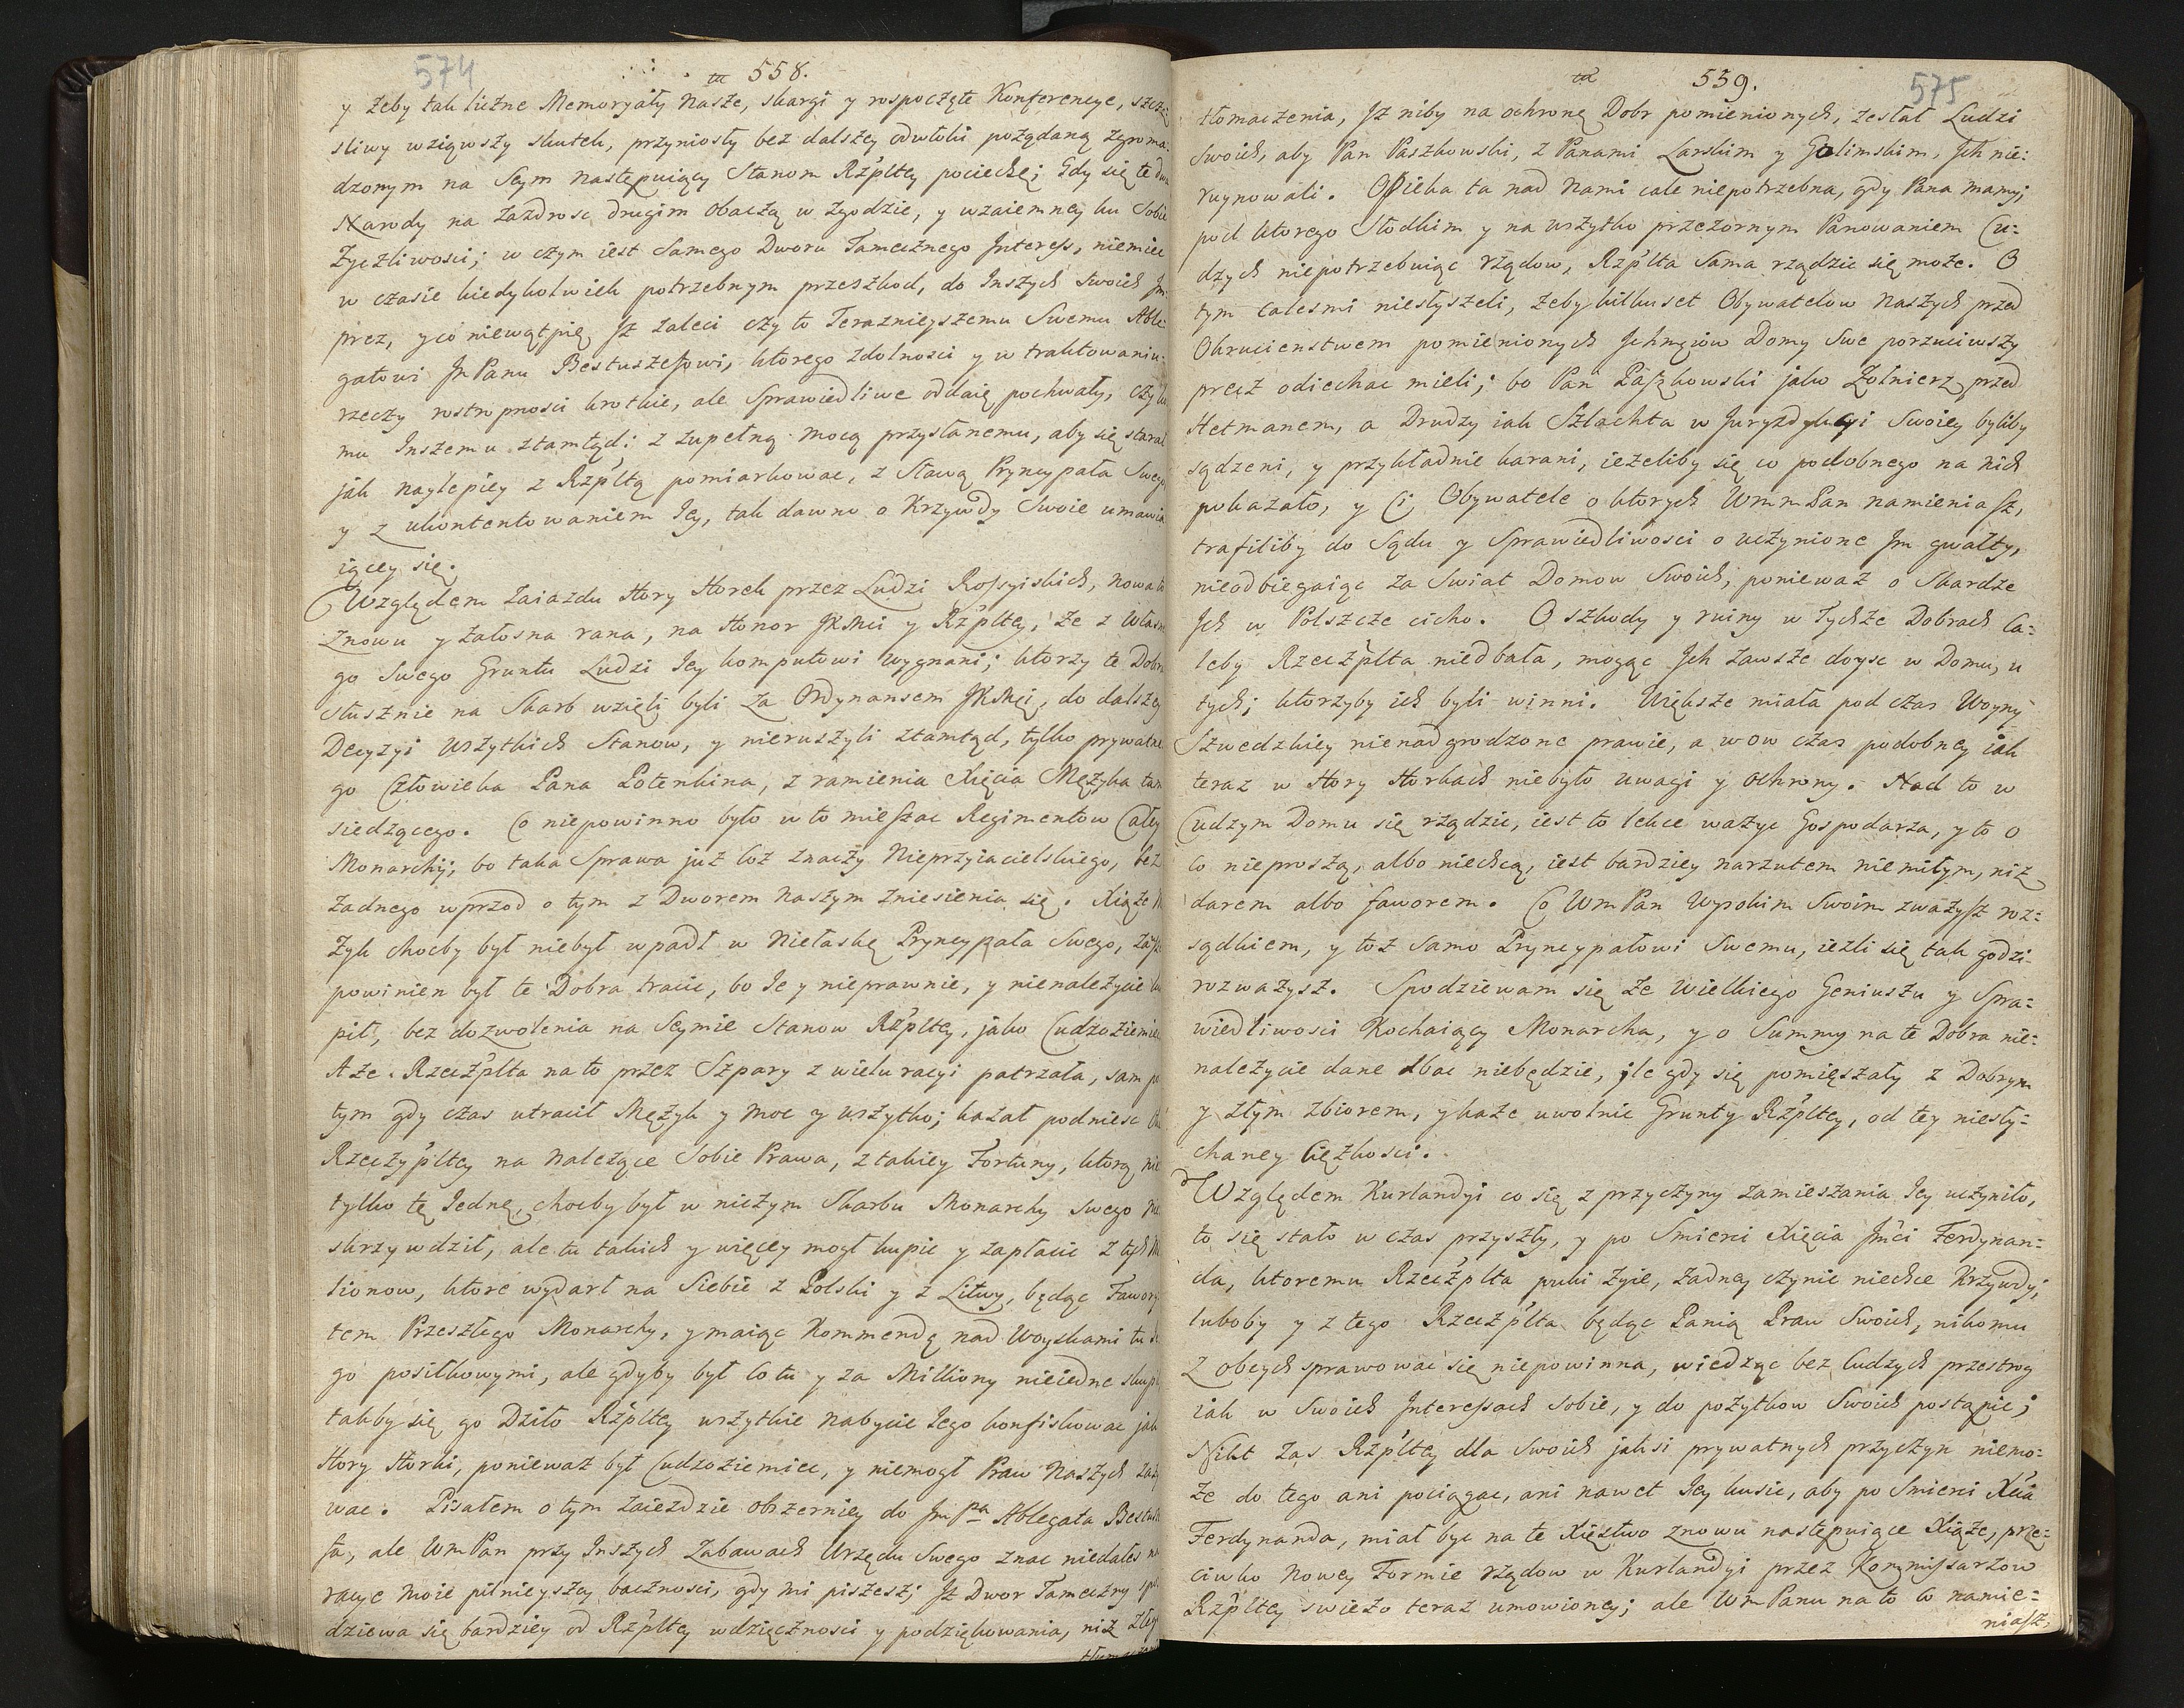 574
558.
y żeby tak liczne Memoryały Nasze, skargi y rospoczęte Konferencye, szczę
sliwy wziąwszy skutek, przyniosły bez dalszey odwłoki pożądaną zgroma:
dzonym na Seym następuiący Stanom Rz'pltey pociechę; Gdy się te dwa
Narody na zazdrosc drugim obaczą w zgodzie, y wzaiemney ku Sobie
Zyczliwosci; w czym iest Samego Dworu Tamecznego Interess, niemiec
w czasie kiedykolwiek potrzebnym przeszkod, do Inszych Swoich Im:
prez, y co niewątpię Jż zaleci czy to Teraznieyszemu Swemu Able:
gatowi JmPanu Bestuszefowi, ktorego zdolnosci y w traktowaniu
rzeczy rostropnosci krotkie, ale Sprawiedliwe oddaię pochwały, czy ko
mu Inszemu ztamtąd; z zupełną mocą przysłanemu, aby się starał
jak naylepiey z Rz'pltą pomiarkowac, z Sławą Pryncypała Swego
y z ukontentowaniem Jey, tak dawno o Krzywdy Swoie umawia
iącey się.
Względem zaiazdu Hory Horek przez Ludzi Rossyiskich, nowa to
znowu y żałosna rana, na Honor JKMci y Rz'pltey, że z Własne
go Swego Gruntu Ludzi Jey komputowi wygnani; ktorzy te Dobra
słusznie na Skarb wzięli byli za Ordynansem JKMci, do dalszey
Decyzyi wszytkich Stanow, y nieruszyli ztamtąd, tylko prywatne
go Człowieka Pana Potenkina, z ramienia Xięcia Mężyka tam
siedzącego. Co niepowinno było w to mieszac Regimentow Całey
Monarchij; bo taka Sprawa już coż znaczy Nieprzyiacielskiego, bez
żadnego wprzod o tym z Dworem Naszym zniesienia się. Xiąże M
żyk chocby był niebył wpadł w Niełaskę Pryncypała Swego,
powinien był te Dobra tracic, bo Je y nieprawnie, y nienależycie ku
pił, bez dozwolenia na Seymie Stanow Rz'pltey, jako Cudzoziemiec
A że Rzecżplta na to przez Szpary z wielu racyi patrzała, sam po
tym gdy czas utracił Mężyk y moc y wszytko; kazał podniesc
Rzeczyp'ltey na Należące Sobie Prawa, z takiey Fortuny, ktorą nie
tylko tę Jednę, chocby był w niczym Skarbu Monarchy swego nie
skrzywdził, ale tu takich y więcey mogł kupic y zapłacic z tych Mi
lionow, ktore wydarł na Siebie z Polski y z Litwy, będąc Fawory
tem Przeszłego Monarchy, y maiąc Kommendę nad Woyskami tu Je
go posiłkowymi, ale gdyby był co tu y za Milliony nieiedne skupił
takby się go dziło Rz'pltey wszytkie nabycie Jego konfiskowac jak
Hory Horki, poniewaz był Cudzoziemiec, y niemogł Praw Naszych zaży
wac. Pisałem o tym zaiezdzie obszerniey do JmPa Ablegata Bestusze
fa, ale WmPan przy Inszych Zabawach Urzędu Swego znac niedałes na
racye moie pilnieyszey bacznosci, gdy mi piszesz; Jż Dwor Tameczny spo
dziewa się bardziey od Rz'pltey wdzięcznosci y podziękowania, niż złego
575
559.
tłomaczenia, Jż niby na ochronę Dobr pomienionych, zesłał Ludzi
Swoich, aby Pan Paszkowski, z Panami Larskim y Golimskim, Jch nie:
ruynowali. Opieka ta nad Nami cale niepotrzebna, gdy Pana mamy;
pod ktorego Słodkim y na wszytko przezornym Panowaniem Cu:
dzych niepotrzebuiąc rządow, Rz'plta Sama rządzic się może. O
tym calesmi niesłyszeli, żeby kilkuset Obywatelow Naszych przed
Okrucienstwem pomienionych Jchmciow Domy Swe porzuciwszy
precz odiechac mieli; bo Pan Paszkowski jako Zołnierz przed
Hetmanem, a Drudzy iak Szlachta w Juryzdykcyi Swoiey byliby
sądzeni, y przykładnie karani, ieżeliby się co podobnego na Nich
pokazało, y Ci, Obywatele o ktorych WmmPan namieniasz,
trafiliby do Sądu y Sprawiedliwosci o uczynione Jm gwałty,
nieodbiegaiąc za Swiat Domow Swoich; poniewaz o Skardze
Jch w Polszcze cicho. O szkody y ruiny w Tychże Dobrach Ca:
leby Rzecżplta niedbała, mogąc Jch zawsze doysc w Domu, u
tych; ktorzyby ich byli winni. Większe miała pod czas Woyny
Szwedzkiey nienadgrodzone prawie, a wow czas podobney iak
teraz w Hory Horkach niebyło uwagi y ochrony. Nad to w
Cudzym Domu się rządzic, iest to lekce ważyc Gospodarza, y to o
co nieproszą, albo niechcą, iest bardziey narzutem niemiłym, niż
darem albo faworem. Co WmPan Wysokim Swoim zważysz roz:
sądkiem, y toż Samo Pryncypałowi Swemu, ieżli się tak godzi:
rozważysz. Spodziewam się że Wielkiego Geniuszu y Spra:
wiedliwosci Kochaiący Monarcha, y o Summy na te Dobra nie:
należycie dane dbac niebędzie, ile gdy się pomięszały z Dobrym
y złym zbiorem, y każe uwolnic Grunty Rz'pltey, od tey niesły:
chaney Ciężkosci.
Względem Kurlandyi co się z przyczyny zamieszania Jey uczyniło,
to się stało w czas przyszły, y po Smierci Xięcia Jm'ci Ferdynan:
da, ktoremu Rzecżplta puki żyie, żadney czynic niechce Krzywdy;
luboby y z tego Rzecżplta będąc Panią Praw Swoich, nikomu
z obcych sprawowac się niepowinna, wiedząc bez Cudzych przestrog
iak w Swoich Interessach sobie, y do pożytkow Swoich postąpic;
Nikt zas Rz'pltey dla Swoich jakisi prywatnych przyczyn niemo:
że do tego ani pociągac, ani nawet Jey kusic, aby po Smierci Xcia
Ferdynanda, miał byc na te Xięstwo znowu następuiące Xiąże, prze:
ciwko Nowey Formie rządow w Kurlandyi przez Kommissarzow
Rz'pltey swieżo teraz umowioney; ale WmPanu na to Co namie:
niasz,